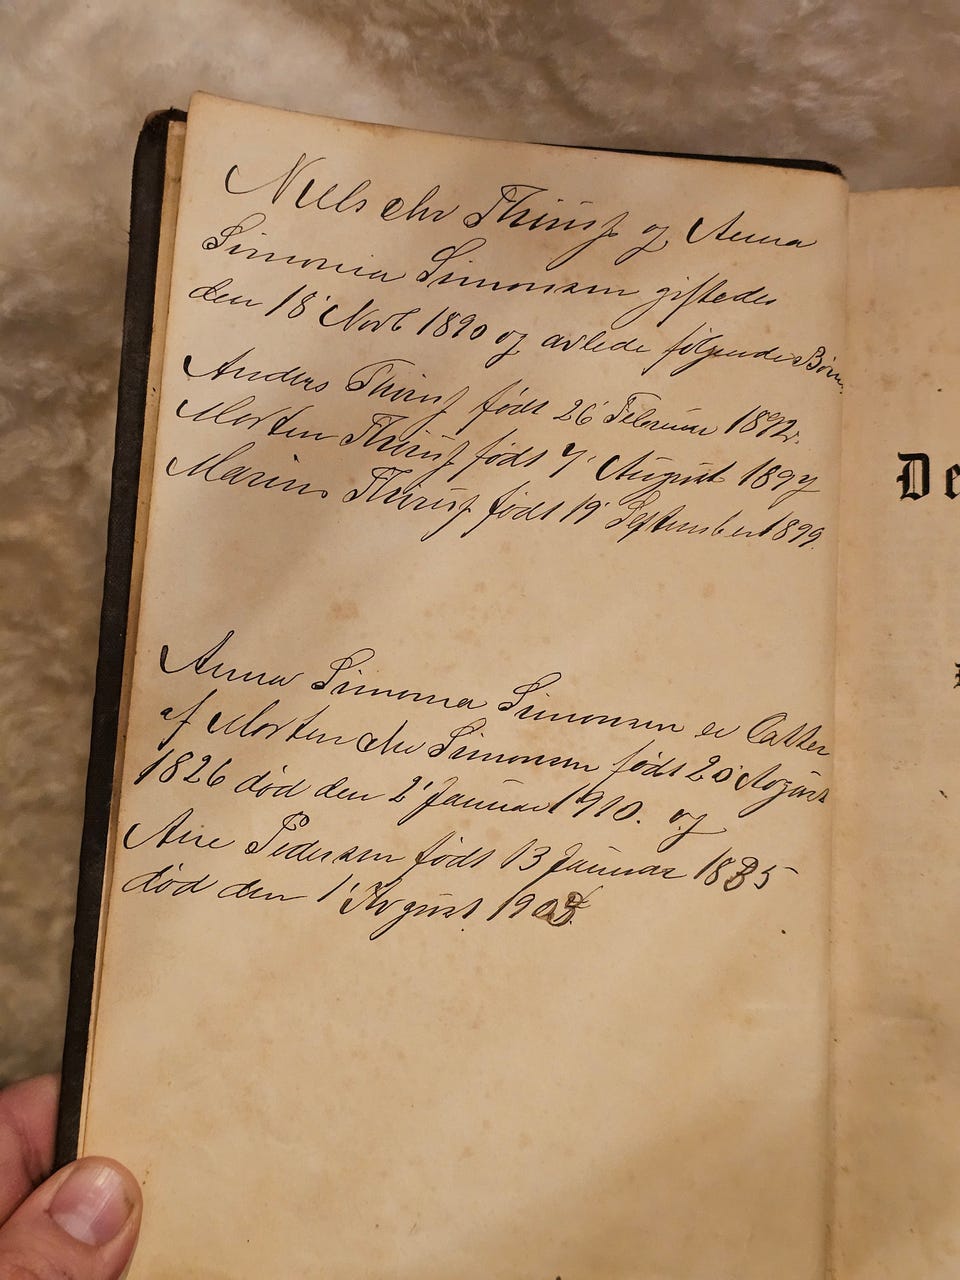 Niels Chr Thirup og Anna
Simonia Simonsen giftedes
den 18' Novb 1890 og avlede følgende Børn
Anders Thirup født 26' Februar 1892.
Morten Thirup født 7' August 1897
Marius Thirup født 19' September 1899.
Anna Simonia Simonsen er Datter
af Morten Chr Simonsen født 20' August
1826 død den 2' Januar 1910. og
Ane Pedersen født 13 Januar 1835
død den 1' August
De